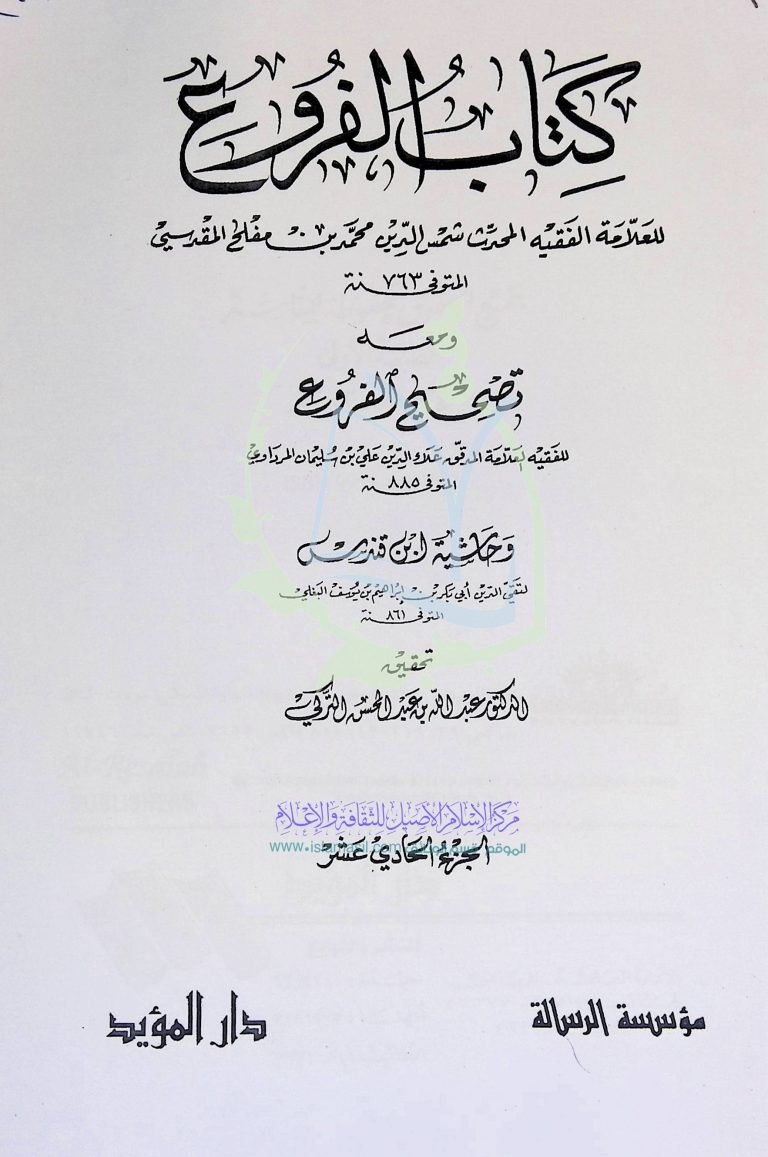 كِتَابُ الفُرُوع
للعلّامة الفقيه المحدّث شمس الدّين محمّد بن مفلح المقدسيّ
المتوفى ٧٦٣ سنة
ومعه
تصحيح الفروع
للفقيه العلّامة المدقّق علاء الدّين علي بن سليمان المرداوي
المتوفى ٨٨٥ سنة
وحاشية ابن قندس
لتقيّ الدّين أبي بكر بن إبراهيم بن يوسف البعلي
المتوفى ٨٦١ سنة
تحقيق
الدكتور عبد الله بن عبد المحسن التركي
مركز الإسلام الأصيل للثقافة والإعلام
www.islamasil.com الموقع
الجزء الحادي عشر
مؤسسة الرسالة
دار المؤيد